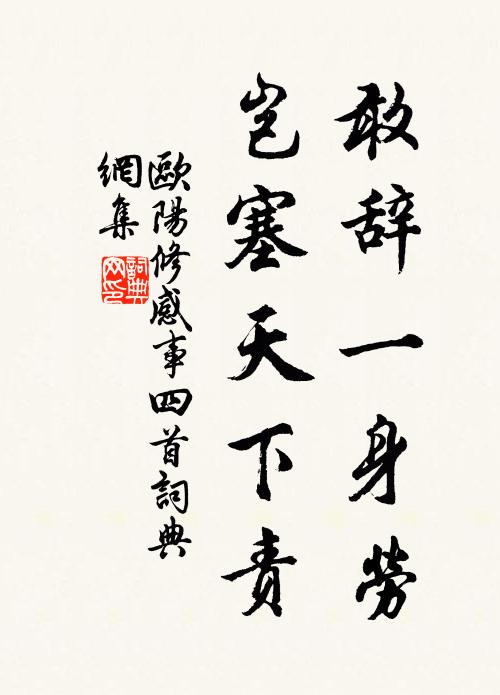 敢辞一身勞
豈塞天下责
歐陽修感事四首詞典
網集
詞典
网印